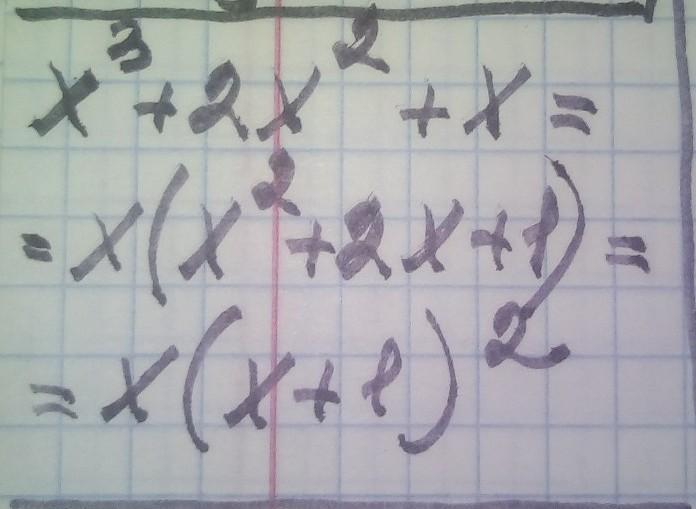 x³+2x²+x=
=x(x²+2x+1)=
=x(x+1)²